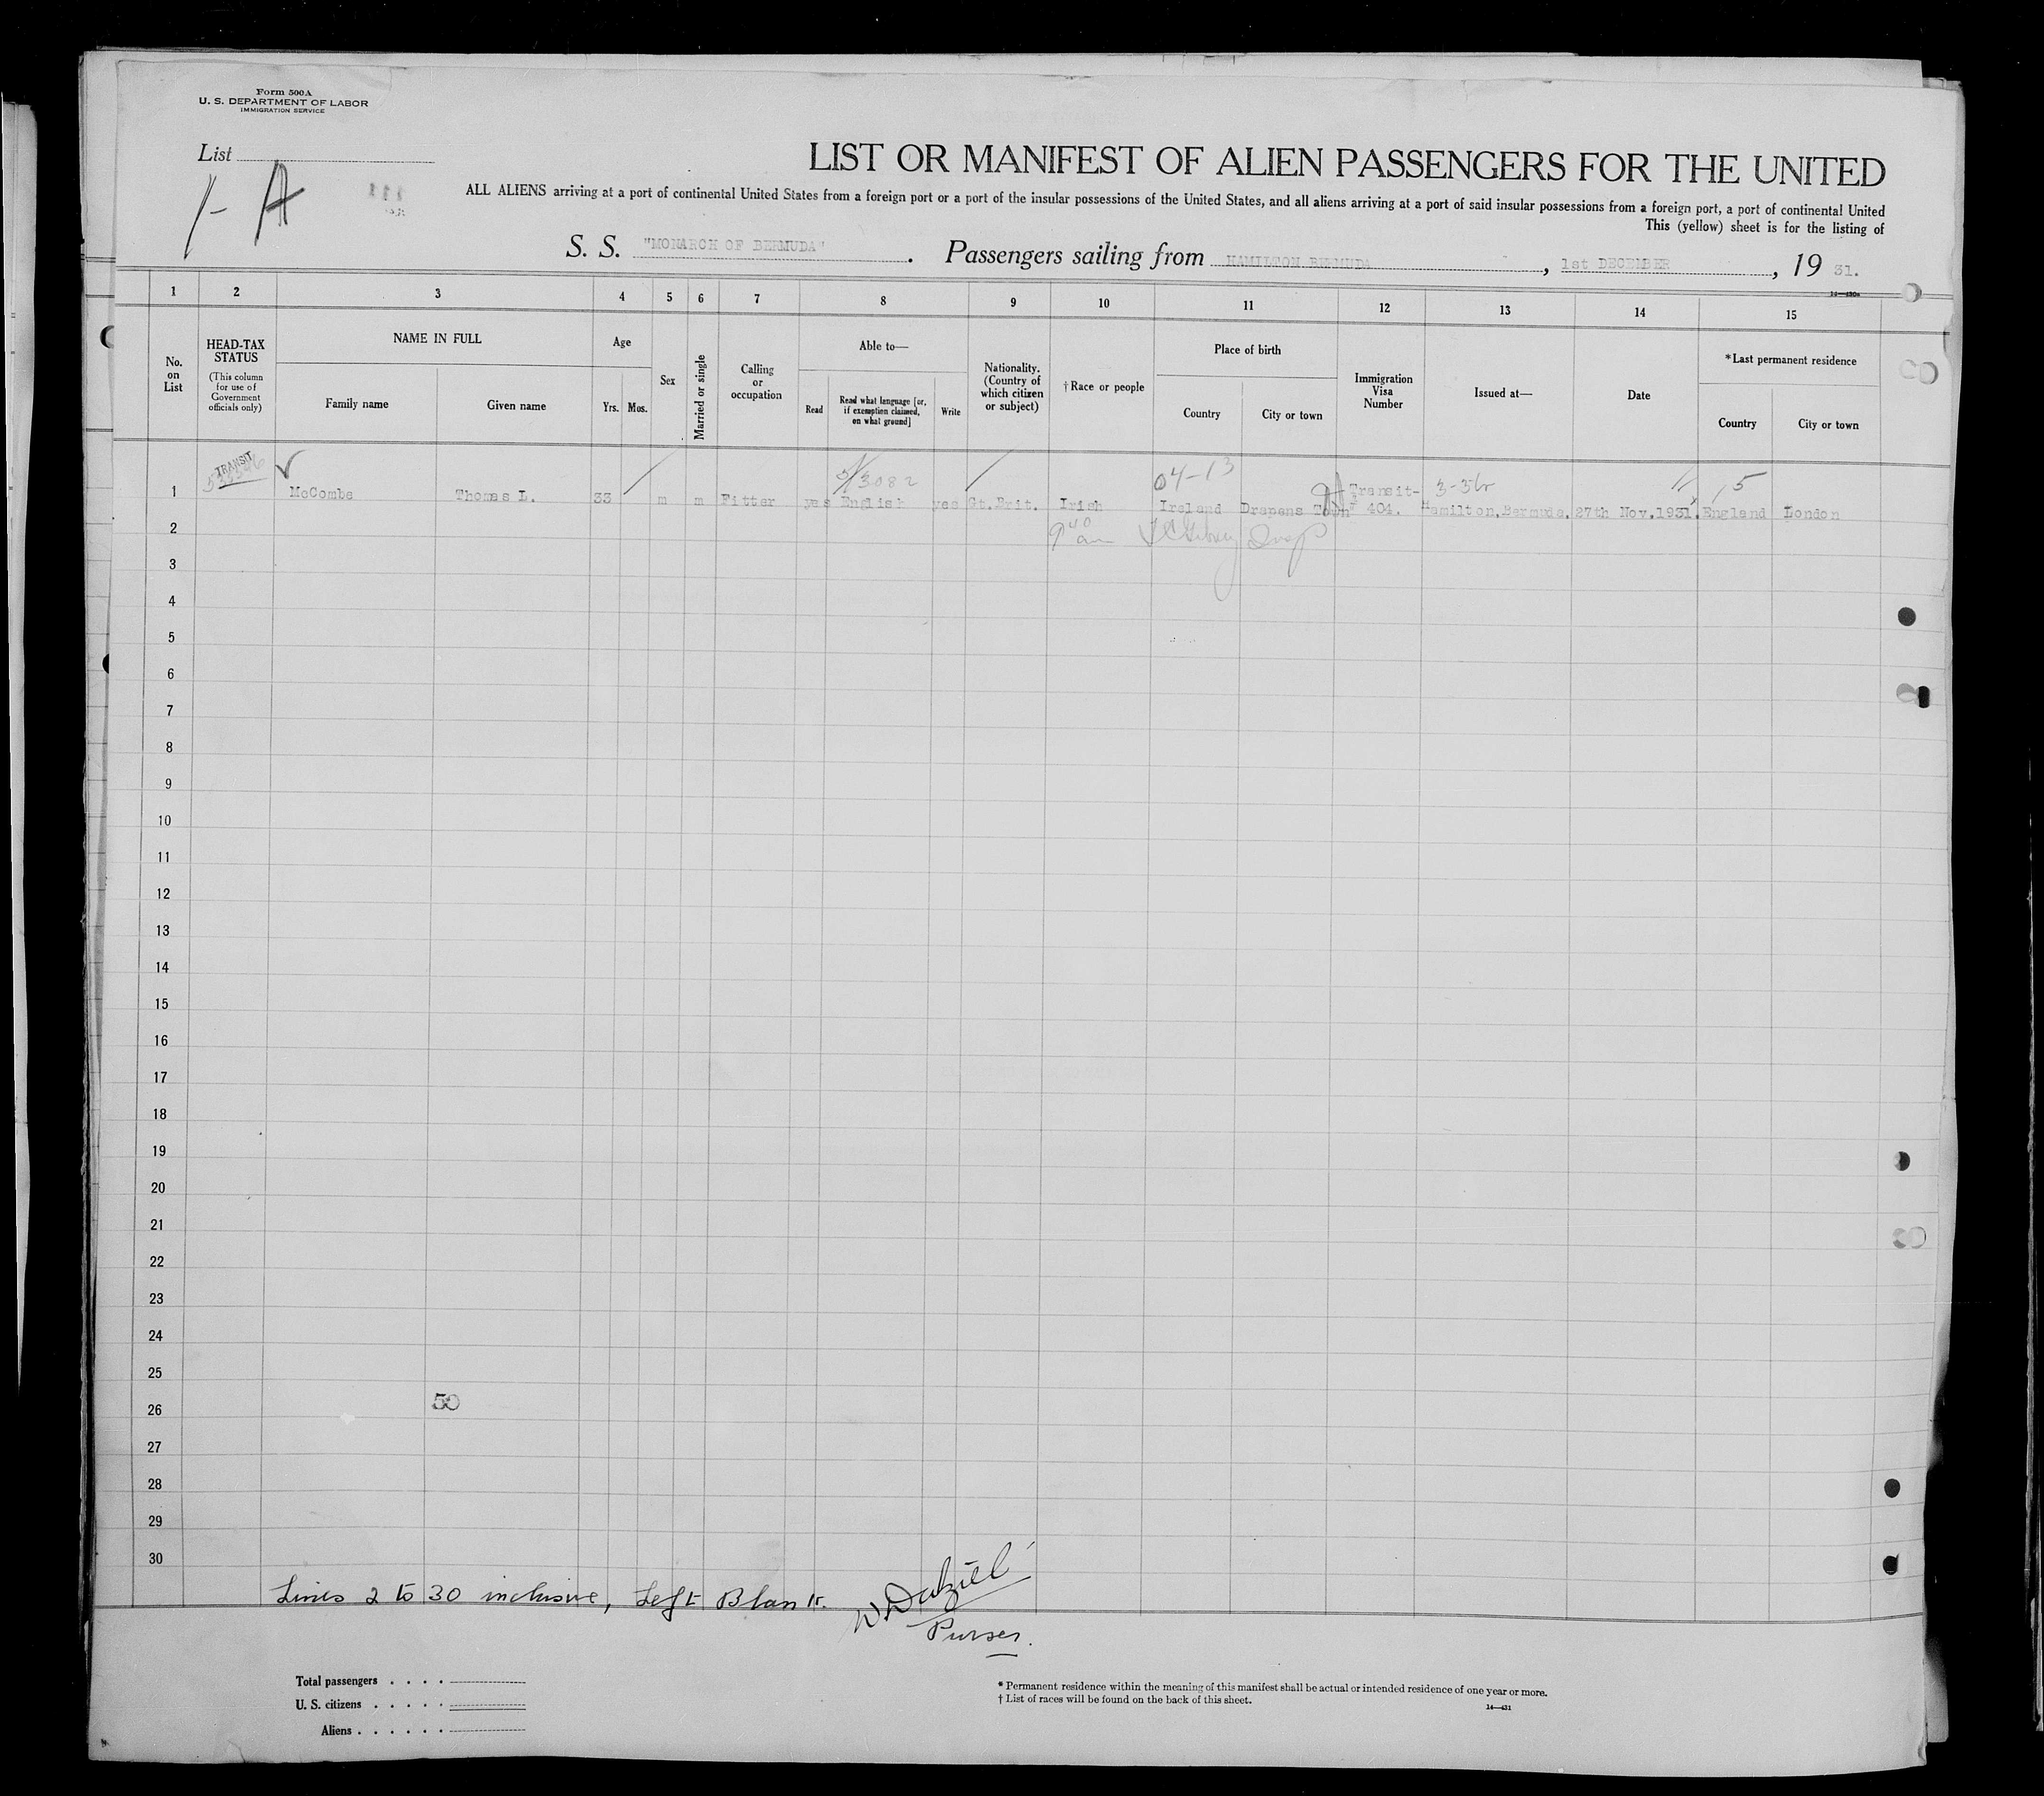 Form 500A
U. S. DEPARTMENT OF LABOR
IMMIGRATION SERVICE
List
1-A
111
LIST OR MANIFEST OF ALIEN PASSENGERS FOR THE UNITED
ALL ALIENS arriving at a port of continental United States from a foreign port or a port of the insular possessions of the United States, and all aliens arriving at a port of said insular possessions from a foreign port, a port of continental United
This (yellow) sheet is for the listing of
S. S. "MONARCH OF BERMUDA". Passengers sailing from HAMILTON BERMUDA, 1st DECEMBER, 19 31.
1 2 3 4 5 6 7 8 9 10 11 12 13 14 15
No. on List
HEAD-TAX STATUS
(This column for use of Government officials only)
NAME IN FULL
Family name
Given name
Age
Yrs.
Mos.
Sex
Married or single
Calling or occupation
Able to—
Read
Read what language [or, if exemption claimed, on what ground]
Write
Nationality. (Country of which citizen or subject)
†Race or people
Place of birth
Country
City or town
Immigration Visa Number
Issued at—
Date
*Last permanent residence
Country
City or town
TRANSIT
3082
04-13
15
1 McCombe Thomas L. 33 m m Fitter yes English yes Gt.Brit. Irish Ireland Drapens Town Transit- 404. Hamilton,Bermuda. 27th Nov.1931. England London
9 40 am
2
3
4
5
6
7
8
9
10
11
12
13
14
15
16
17
18
19
20
21
22
23
24
25
26
50
27
28
29
30
Lines 2 to 30 inclusive, Left Blank.
W. Dalziel
Purser.
Total passengers
U. S. citizens
Aliens
* Permanent residence within the meaning of this manifest shall be actual or intended residence of one year or more.
† List of races will be found on the back of this sheet.